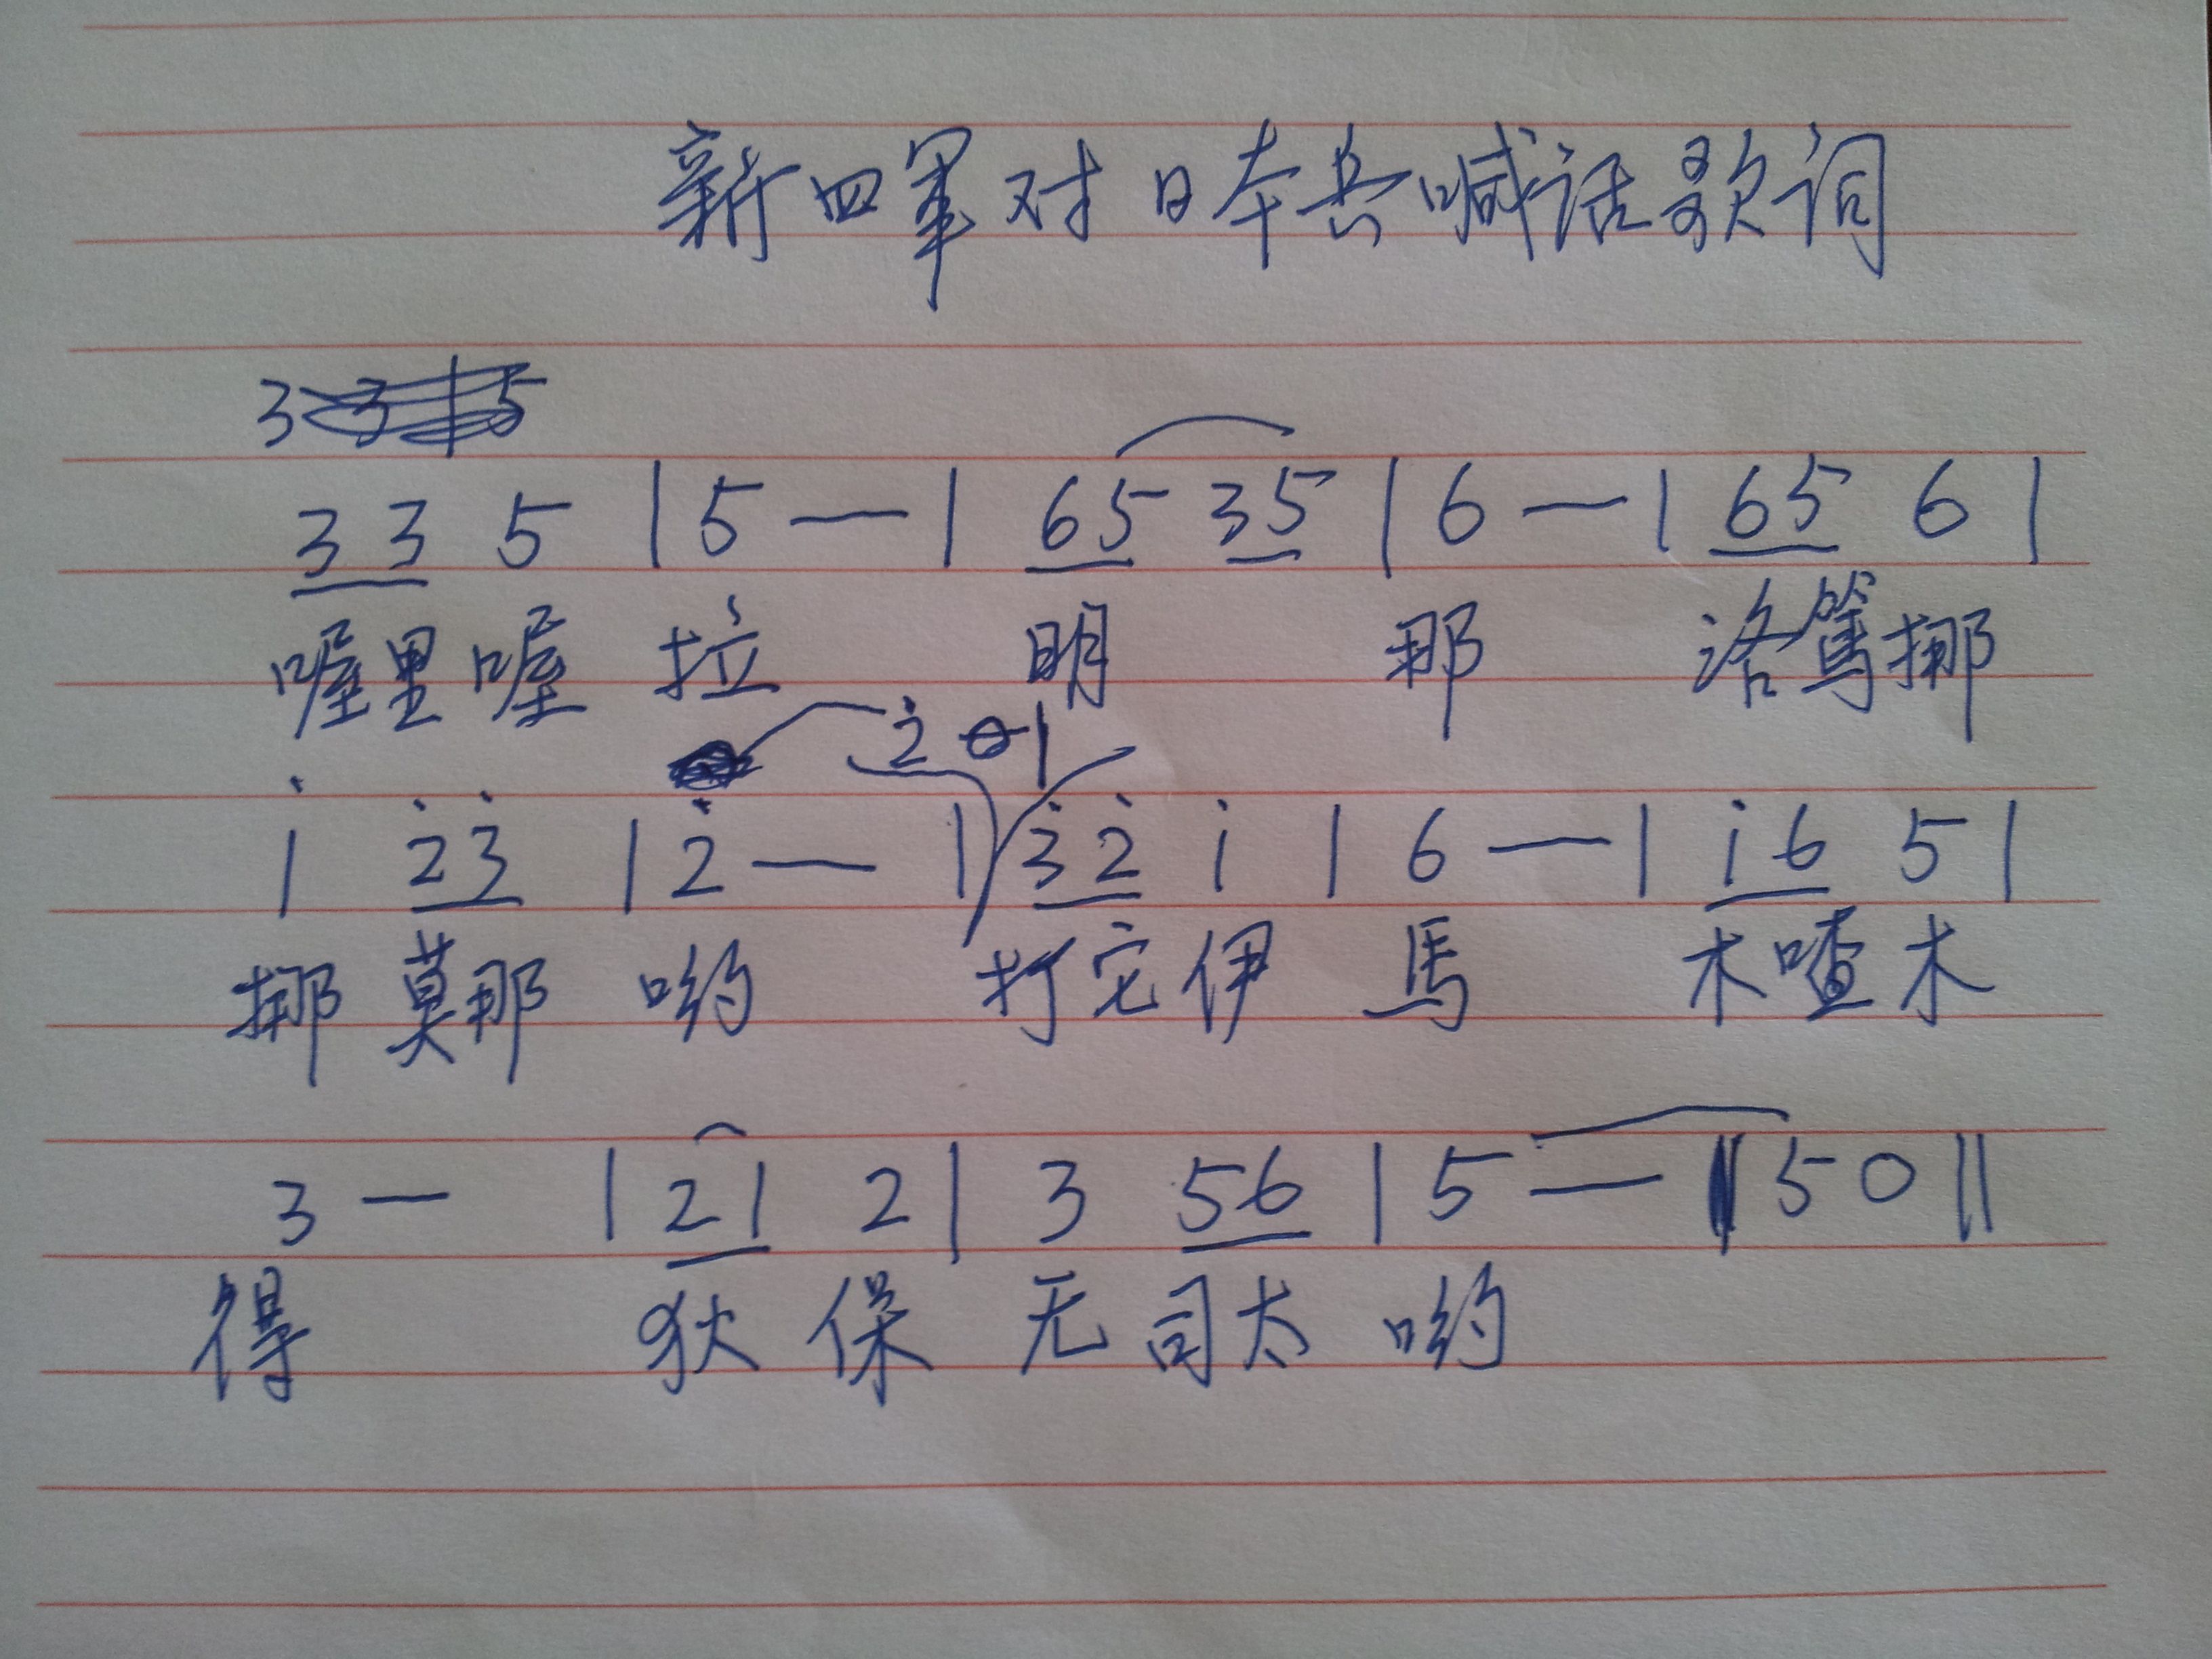 新四军对日本兵喊话歌词
3 3 5 | 5 — | 65 35 | 6 — | 65 6 |
喔里喔 拉 明 那 洛篤挪
2̇ 0 |
i 2̇3̇ | 2̇ — | 3̇2̇ i | 6 — | i6 5 |
挪 莫那 哟 打它伊 馬 木喳木
3 — | 21 2 | 3 56 | 5 — | 50 ||
得 狄 保 无 司太 哟